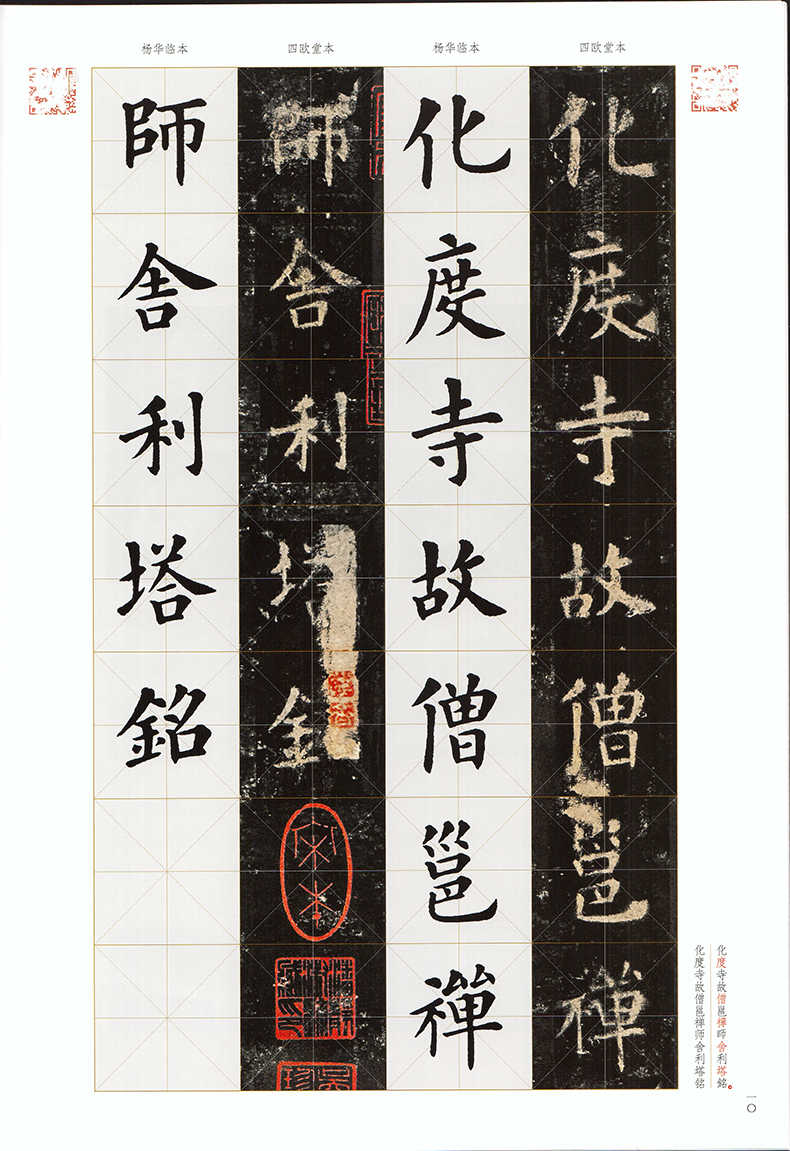 四欧堂本
化度寺故僧邕禪
杨华临本
化度寺故僧邕禪
四欧堂本
師舍利塔
宋本
杨华临本
師舍利塔銘
化度寺故僧邕禪師舍利塔銘。
化度寺故僧邕禅师舍利塔铭
一〇